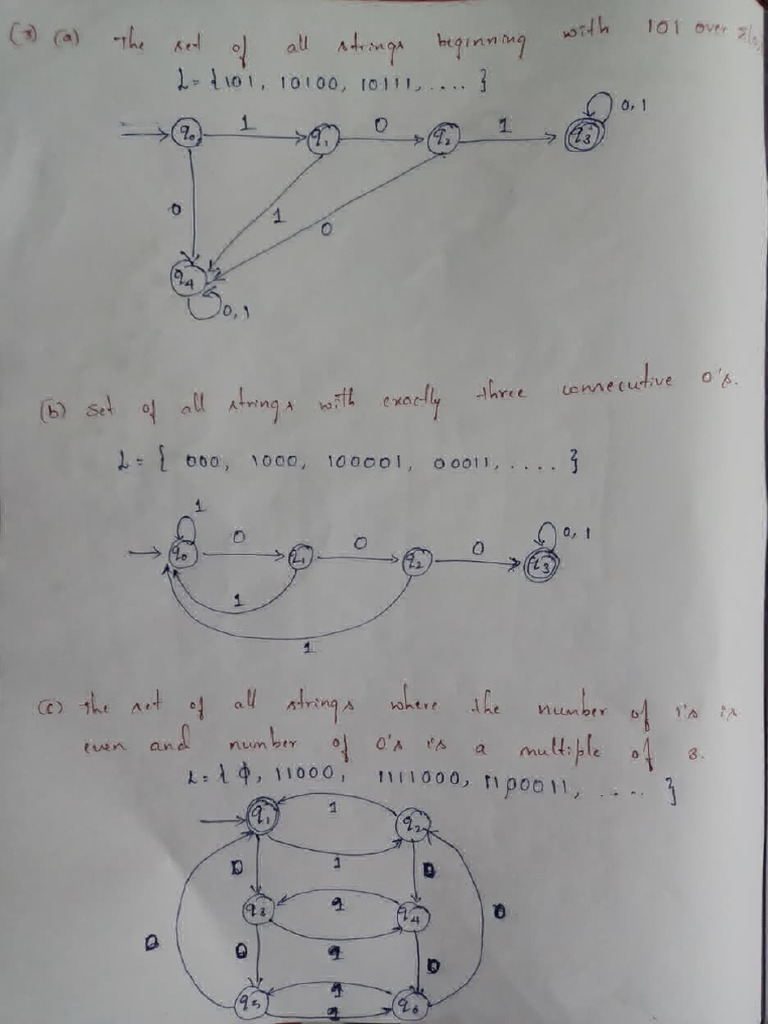 (3) (a) The set of all strings beginning with 101 over Σ{0,
L = {101, 10100, 10111, .... }
q0 1 q1 0 q2 1 q3 0,1
0 1 0
q4
0,1
(b) Set of all strings with exactly three consecutive 0's.
L = { 000, 1000, 100001, 00011, .... }
1
q0 0 q1 0 q2 0 q3 0,1
1
1
(c) The set of all strings where the number of 1's is
even and number of 0's is a multiple of 3.
L = { ϕ, 11000, 1111000, 1100011, .... }
q1 1 q2
0 1 0
q3 1 q4
0 0 1 0 0
q5 1 q6
1